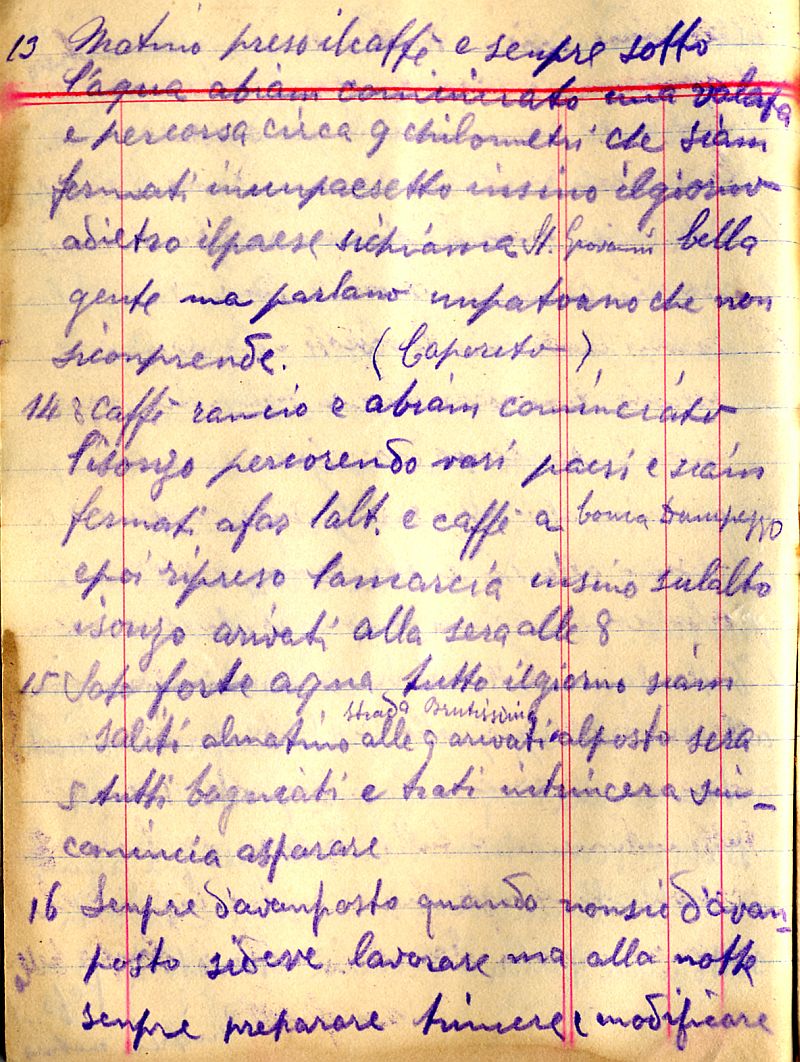 13 Matino preso ilcaffè e senpre sotto
l'aqua abiam cominciato una valata
e percorsa circa 9 chilometri che siam
fermati inunpaesetto insino ilgiorno
adietro ilpaese sichiama St. Giovanni bella
gente ma parlano unpatorno che non
siconprende. (Caporeto)
14 8 caffè rancio e abiam cominciato
l'isonzo percorendo vari paesi e siam
fermati afar l'alt. e caffè a conca Dampezzo
epoi ripreso lamarcia insino sulalto
isonzo arivati alla sera alle 8
15 Soto forte aqua tutto ilgiorno siam
strada brutissima
saliti almatino alle 9 arivati alposto sera
8 tutti bagnati e trati intrincera sin-
comincia asparare
16 Senpre d'avanposto quando nonsie d'avan-
posto sideve lavorare ma alla notte
senpre preparare trincere e modificare